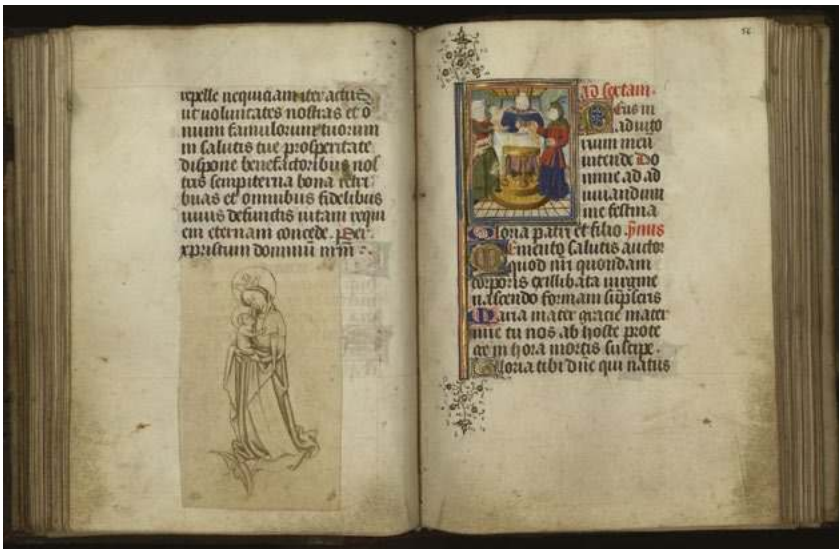 repelle nequiciam iter actus
ut voluntates nostras et o
nium famulorum tuorum
in salutis tue prosperitate
dispone benefactoribus nos
tris sempiterna bona retri
buas et omnibus fidelibus
vivis defunctis vitam requi
em eternam concede. Per
xpristum dominū nrm̄
56
ad sextam.
Deus in
adiuto
rium meū
intende Do
mine ad ad
iuuandum
me festina
Gloria patri et filio. ymnus
Memento salutis auctor
quod nr̄i quondam
corporis ex illibata uirgine
nascendo formam sūpseris
Maria mater gracie mater
mie tu nos ab hoste prote
ge in hora mortis suscipe.
Gloria tibi dn̄e qui natus